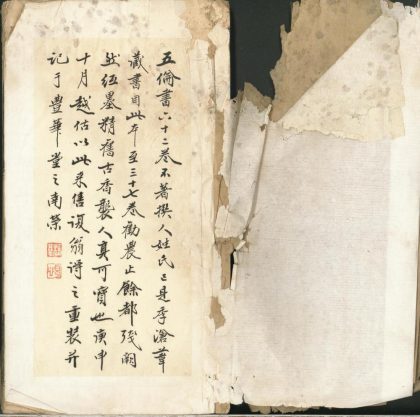 五倫書六十二卷不著撰人姓氏已是季滄葦
藏書目此本至三十七卷勸農止餘都殘闕
然紙墨精舊古香襲人真可寶也庚申
十月越估以此來售復翁得之重裝并
記于豐華堂之南榮